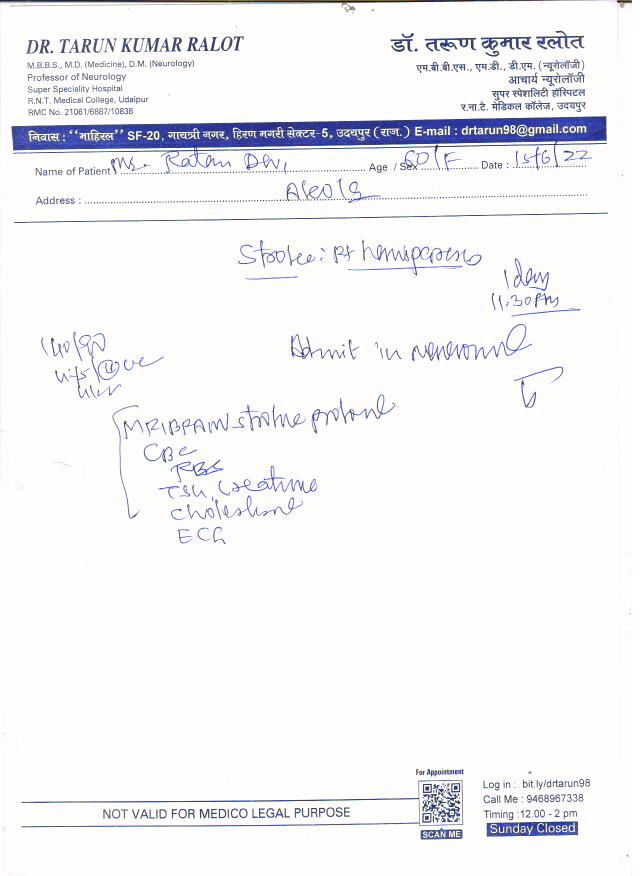 DR. TARUN KUMAR RALOT
M.B.B.S., M.D. (Medicine), D.M. (Neurology)
Professor of Neurology
Super Speciality Hospital
R.N.T. Medical College, Udaipur
RMC No. 21061/6887/10838
डॉ. तरूण कुमार रलोत
एम.बी.बी.एस., एम.डी., डी.एम. (न्यूरोलॉजी)
आचार्य न्यूरोलॉजी
सुपर स्पेशलिटी हॉस्पिटल
र.ना.टे. मेडिकल कॉलेज, उदयपुर
निवास : "माहिरल" SF-20, गायत्री नगर, हिरण मगरी सेक्टर-5, उदयपुर (राज.) E-mail : drtarun98@gmail.com
Name of Patient Ms. Ratan Devi Age / Sex 60/F Date : 15/6/22
Address :
Stroke: Rt hemiparesis
1 day
11:30 PM
140/90
Admit in
MRI BRAIN stroke protocol
CBC
RBS
TSH, Creatinine
Cholesterol
ECG
NOT VALID FOR MEDICO LEGAL PURPOSE
For Appointment
SCAN ME
Log in : bit.ly/drtarun98
Call Me : 9468967338
Timing :12.00 - 2 pm
Sunday Closed